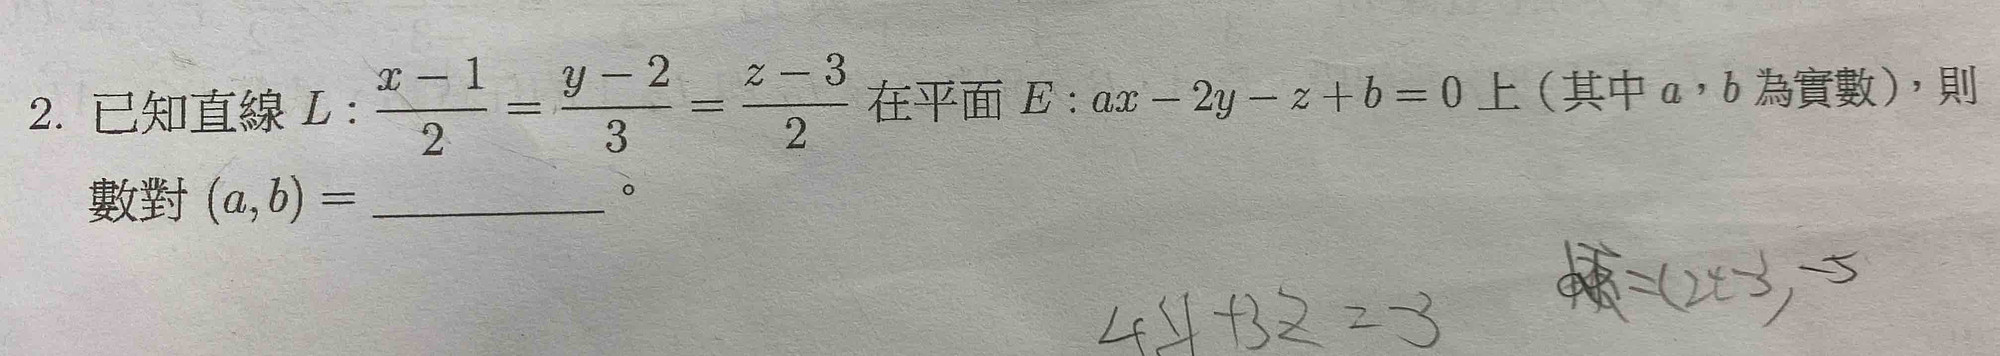 2. 已知直線 L : \frac{x-1}{2} = \frac{y-2}{3} = \frac{z-3}{2} 在平面 E : ax − 2y − z + b = 0 上（其中 a，b 為實數），則
數對 (a, b) = ＿＿＿＿＿。
=(2t-3, -5
4y+3z=-3